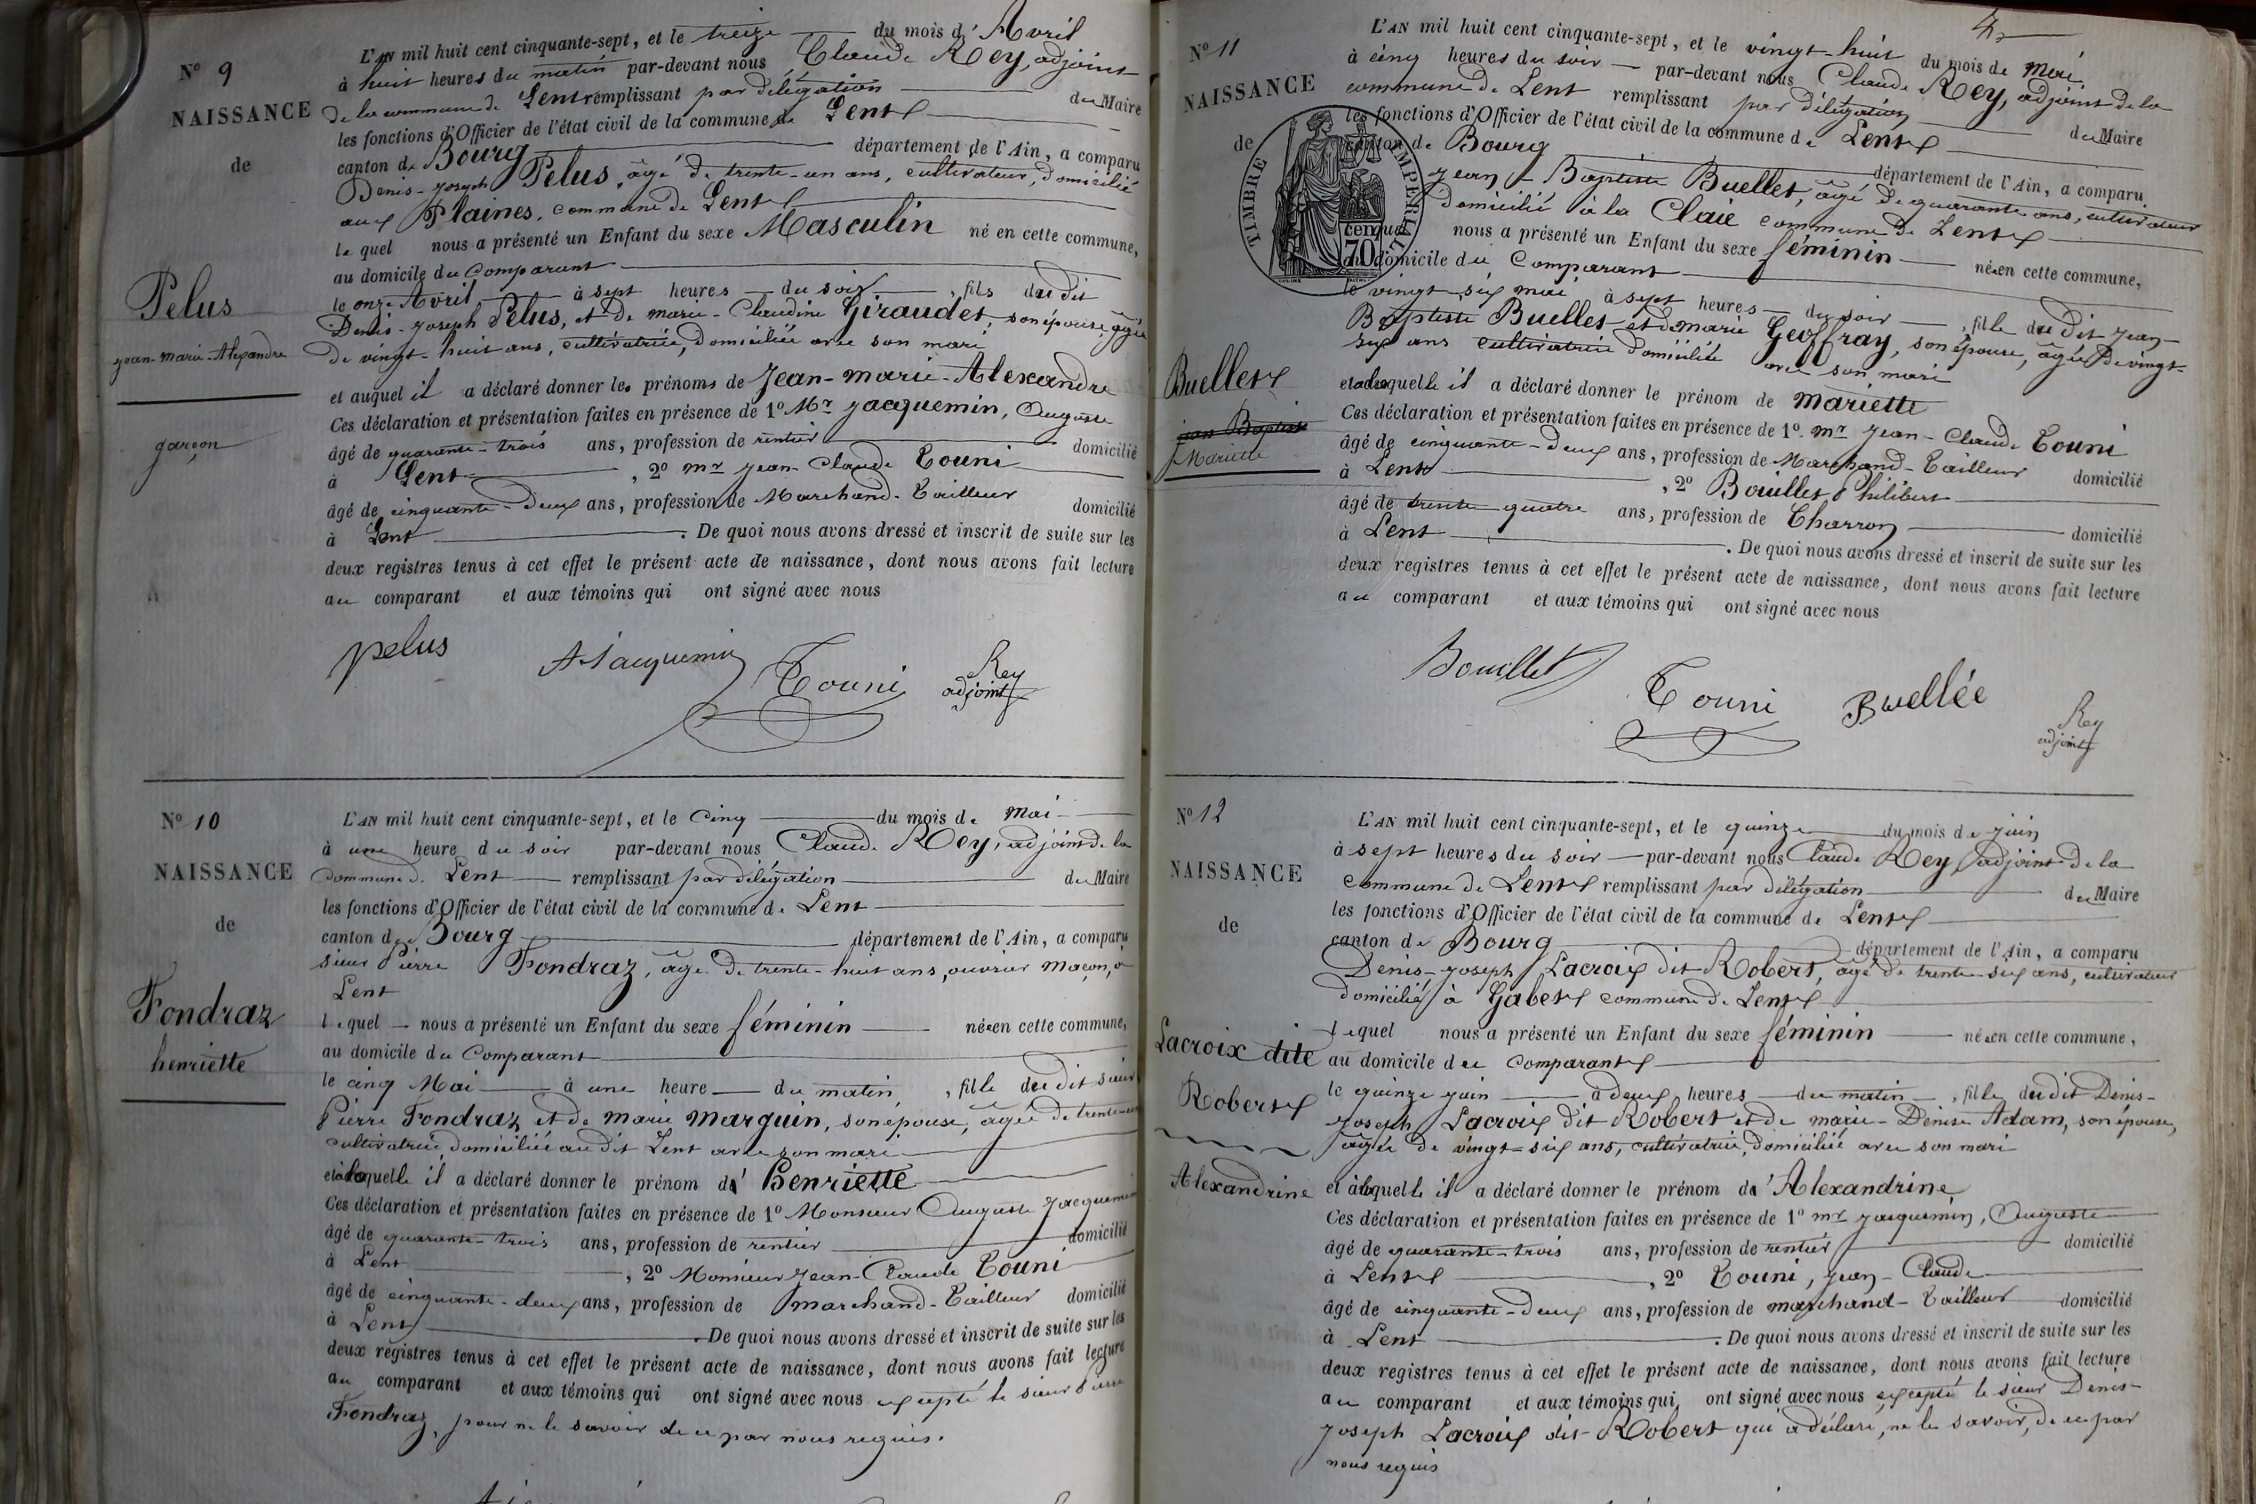 N° 9
NAISSANCE
de
Pelus
jean-marie-Alexandre
garçon
L'AN mil huit cent cinquante-sept, et le treize du mois d'Avril
à huit heures du matin par-devant nous Claude Rey, adjoint
de la commune de Lent remplissant par délégation du Maire
les fonctions d'Officier de l'état civil de la commune de Lent
canton de Bourg département de l'Ain, a comparu
Denis-joseph Pelus, âgé de trente-un ans, cultivateur, domicilié
aux Plaines, commune de Lent
lequel nous a présenté un Enfant du sexe Masculin né en cette commune,
au domicile du Comparant
le onze Avril, à sept heures du soir, fils du dit
Denis-joseph Pelus, et de marie-Claudine Giraudet, son épouse, âgée
de vingt-huit ans, cultivatrice, domiciliée avec son mari
et auquel il a déclaré donner les prénoms de Jean-marie-Alexandre
Ces déclaration et présentation faites en présence de 1° Mr jacquemin, Auguste
âgé de quarante-trois ans, profession de rentier domicilié
à Lent, 2° mr jean-Claude Touni
âgé de cinquante-deux ans, profession de Marchand-Tailleur domicilié
à Lent. De quoi nous avons dressé et inscrit de suite sur les
deux registres tenus à cet effet le présent acte de naissance, dont nous avons fait lecture
au comparant et aux témoins qui ont signé avec nous
pelus AJacquemin Touni Rey
adjoint
N° 10
NAISSANCE
de
Fondraz
henriette
L'AN mil huit cent cinquante-sept, et le cinq du mois de mai
à une heure du soir par-devant nous Claude Rey, adjoint de la
commune de Lent remplissant par délégation du Maire
les fonctions d'Officier de l'état civil de la commune de Lent
canton de Bourg département de l'Ain, a comparu
sieur Pierre Fondraz, âgé de trente-huit ans, ouvrier maçon, à
Lent
lequel nous a présenté un Enfant du sexe féminin née en cette commune,
au domicile du Comparant
le cinq Mai à une heure du matin, fille du dit sieur
Pierre Fondraz et de marie marguin, son épouse, âgée de trente
cultivatrice, domiciliée au dit Lent avec son mari
et à laquelle il a déclaré donner le prénom d'henriette
Ces déclaration et présentation faites en présence de 1° Monsieur Auguste jacquemin
âgé de quarante-trois ans, profession de rentier domicilié
à Lent, 2° Monsieur jean-Claude Touni
âgé de cinquante-deux ans, profession de marchand-Tailleur domicilié
à Lent. De quoi nous avons dressé et inscrit de suite sur les
deux registres tenus à cet effet le présent acte de naissance, dont nous avons fait lecture
au comparant et aux témoins qui ont signé avec nous excepté le sieur Pierre
Fondraz, pour ne le savoir de ce par nous requis.
N° 11
NAISSANCE
de
TIMBRE IMPERIAL
70 cen
Buellet
jean Baptiste
Mariette
L'AN mil huit cent cinquante-sept, et le vingt-huit du mois de mai
à cinq heures du soir par-devant nous Claude Rey, adjoint de la
commune de Lent remplissant par délégation du Maire
les fonctions d'Officier de l'état civil de la commune de Lent
canton de Bourg département de l'Ain, a comparu
jean-Baptiste Buellet, âgé de quarante ans, cultivateur
domicilié à la Claie commune de Lent
lequel nous a présenté un Enfant du sexe féminin née en cette commune,
au domicile du Comparant
le vingt-six mai à sept heures du soir, fille du dit jean-
Baptiste Buellet et de marie Geoffray, son épouse, âgée de vingt-
six ans cultivatrice domiciliée avec son mari
et à laquelle il a déclaré donner le prénom de mariette
Ces déclaration et présentation faites en présence de 1° mr jean-Claude Touni
âgé de cinquante-deux ans, profession de Marchand-Tailleur domicilié
à Lent, 2° Bouillet Philibert
âgé de trente quatre ans, profession de Charron domicilié
à Lent. De quoi nous avons dressé et inscrit de suite sur les
deux registres tenus à cet effet le présent acte de naissance, dont nous avons fait lecture
au comparant et aux témoins qui ont signé avec nous
Bouillet Touni Buellée Rey
adjoint
N° 12
NAISSANCE
de
Lacroix dite
Robert
Alexandrine
L'AN mil huit cent cinquante-sept, et le quinze du mois de juin
à sept heures du soir par-devant nous Claude Rey, adjoint de la
commune de Lent remplissant par délégation du Maire
les fonctions d'Officier de l'état civil de la commune de Lent
canton de Bourg département de l'Ain, a comparu
Denis-joseph Lacroix dit Robert, âgé de trente-six ans, cultivateur
domicilié à Gabet commune de Lent
lequel nous a présenté un Enfant du sexe féminin née en cette commune,
au domicile du comparant
le quinze juin à deux heures du matin, fille du dit Denis-
joseph Lacroix dit Robert et de marie-Denise Adam, son épouse,
âgée de vingt-six ans, cultivatrice, domiciliée avec son mari
et à laquelle il a déclaré donner le prénom d'Alexandrine
Ces déclaration et présentation faites en présence de 1° mr jacquemin, Auguste
âgé de quarante-trois ans, profession de rentier domicilié
à Lent, 2° Touni, jean-Claude
âgé de cinquante-deux ans, profession de marchand-Tailleur domicilié
à Lent. De quoi nous avons dressé et inscrit de suite sur les
deux registres tenus à cet effet le présent acte de naissance, dont nous avons fait lecture
au comparant et aux témoins qui ont signé avec nous excepté le sieur Denis-
joseph Lacroix dit Robert qui a déclaré, ne le savoir, de ce par
nous requis